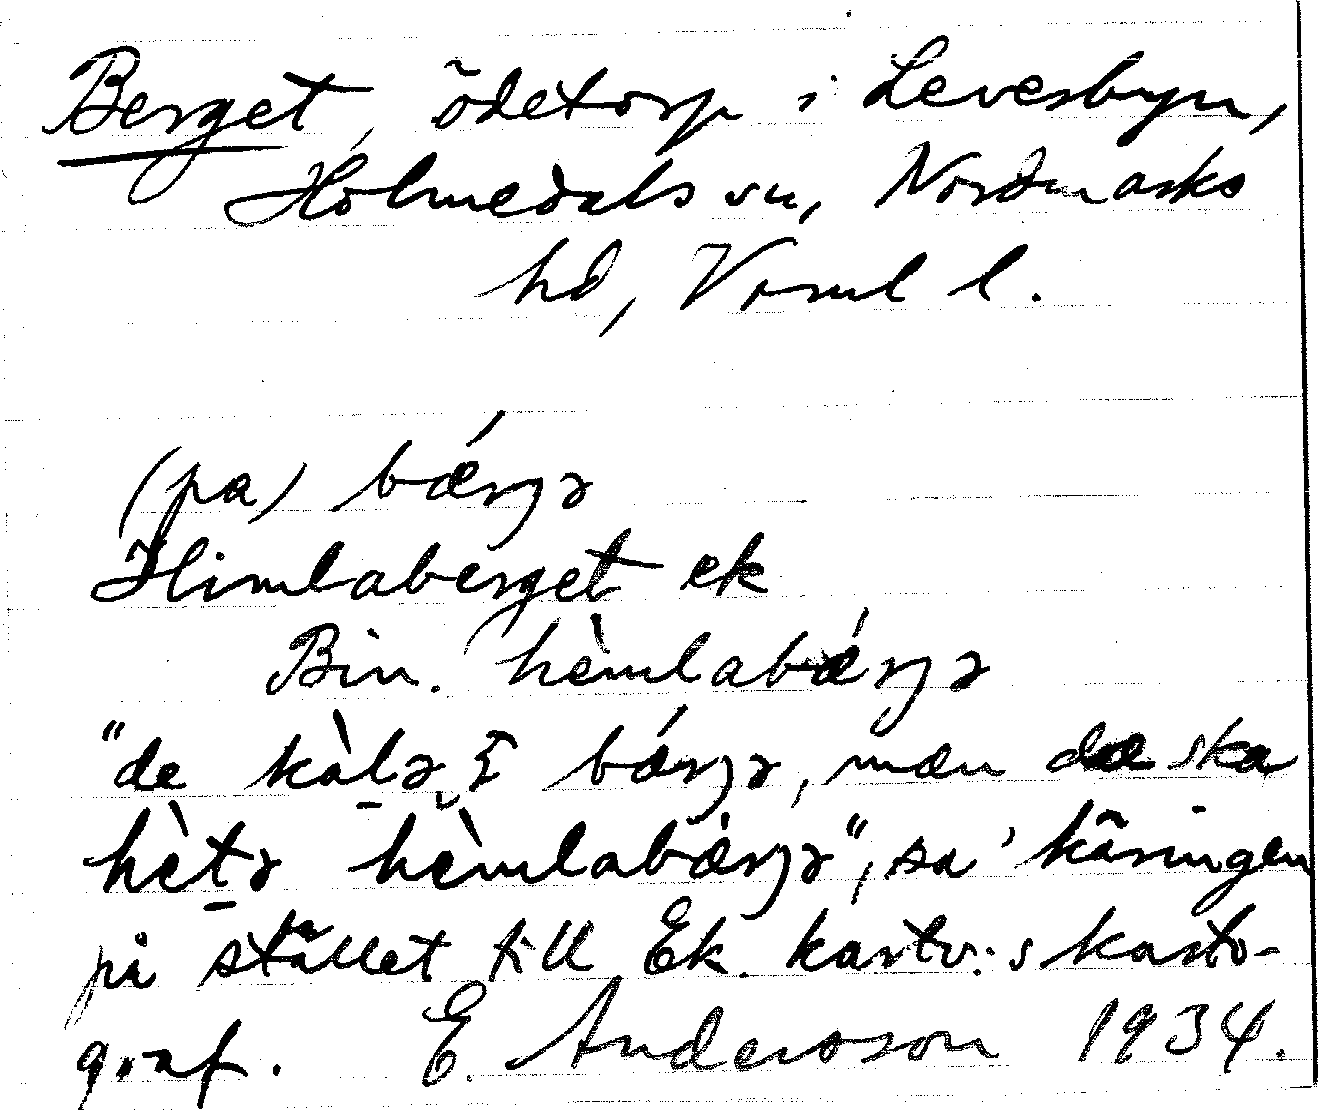 Berget, ödetorp i Levesbyn,
Holmedals sn, Nordmarks
hd, Verml l.
(pa) bǽrjə
Himlaberget ek
Bin. hèmlabǽrjə
"de kàlə bǽrjə, mæn dæ ska
hètə hèmlabǽrjə", sa' käringen
på stället till Ek. kartv:s karto-
graf. E. Andersson 1934.